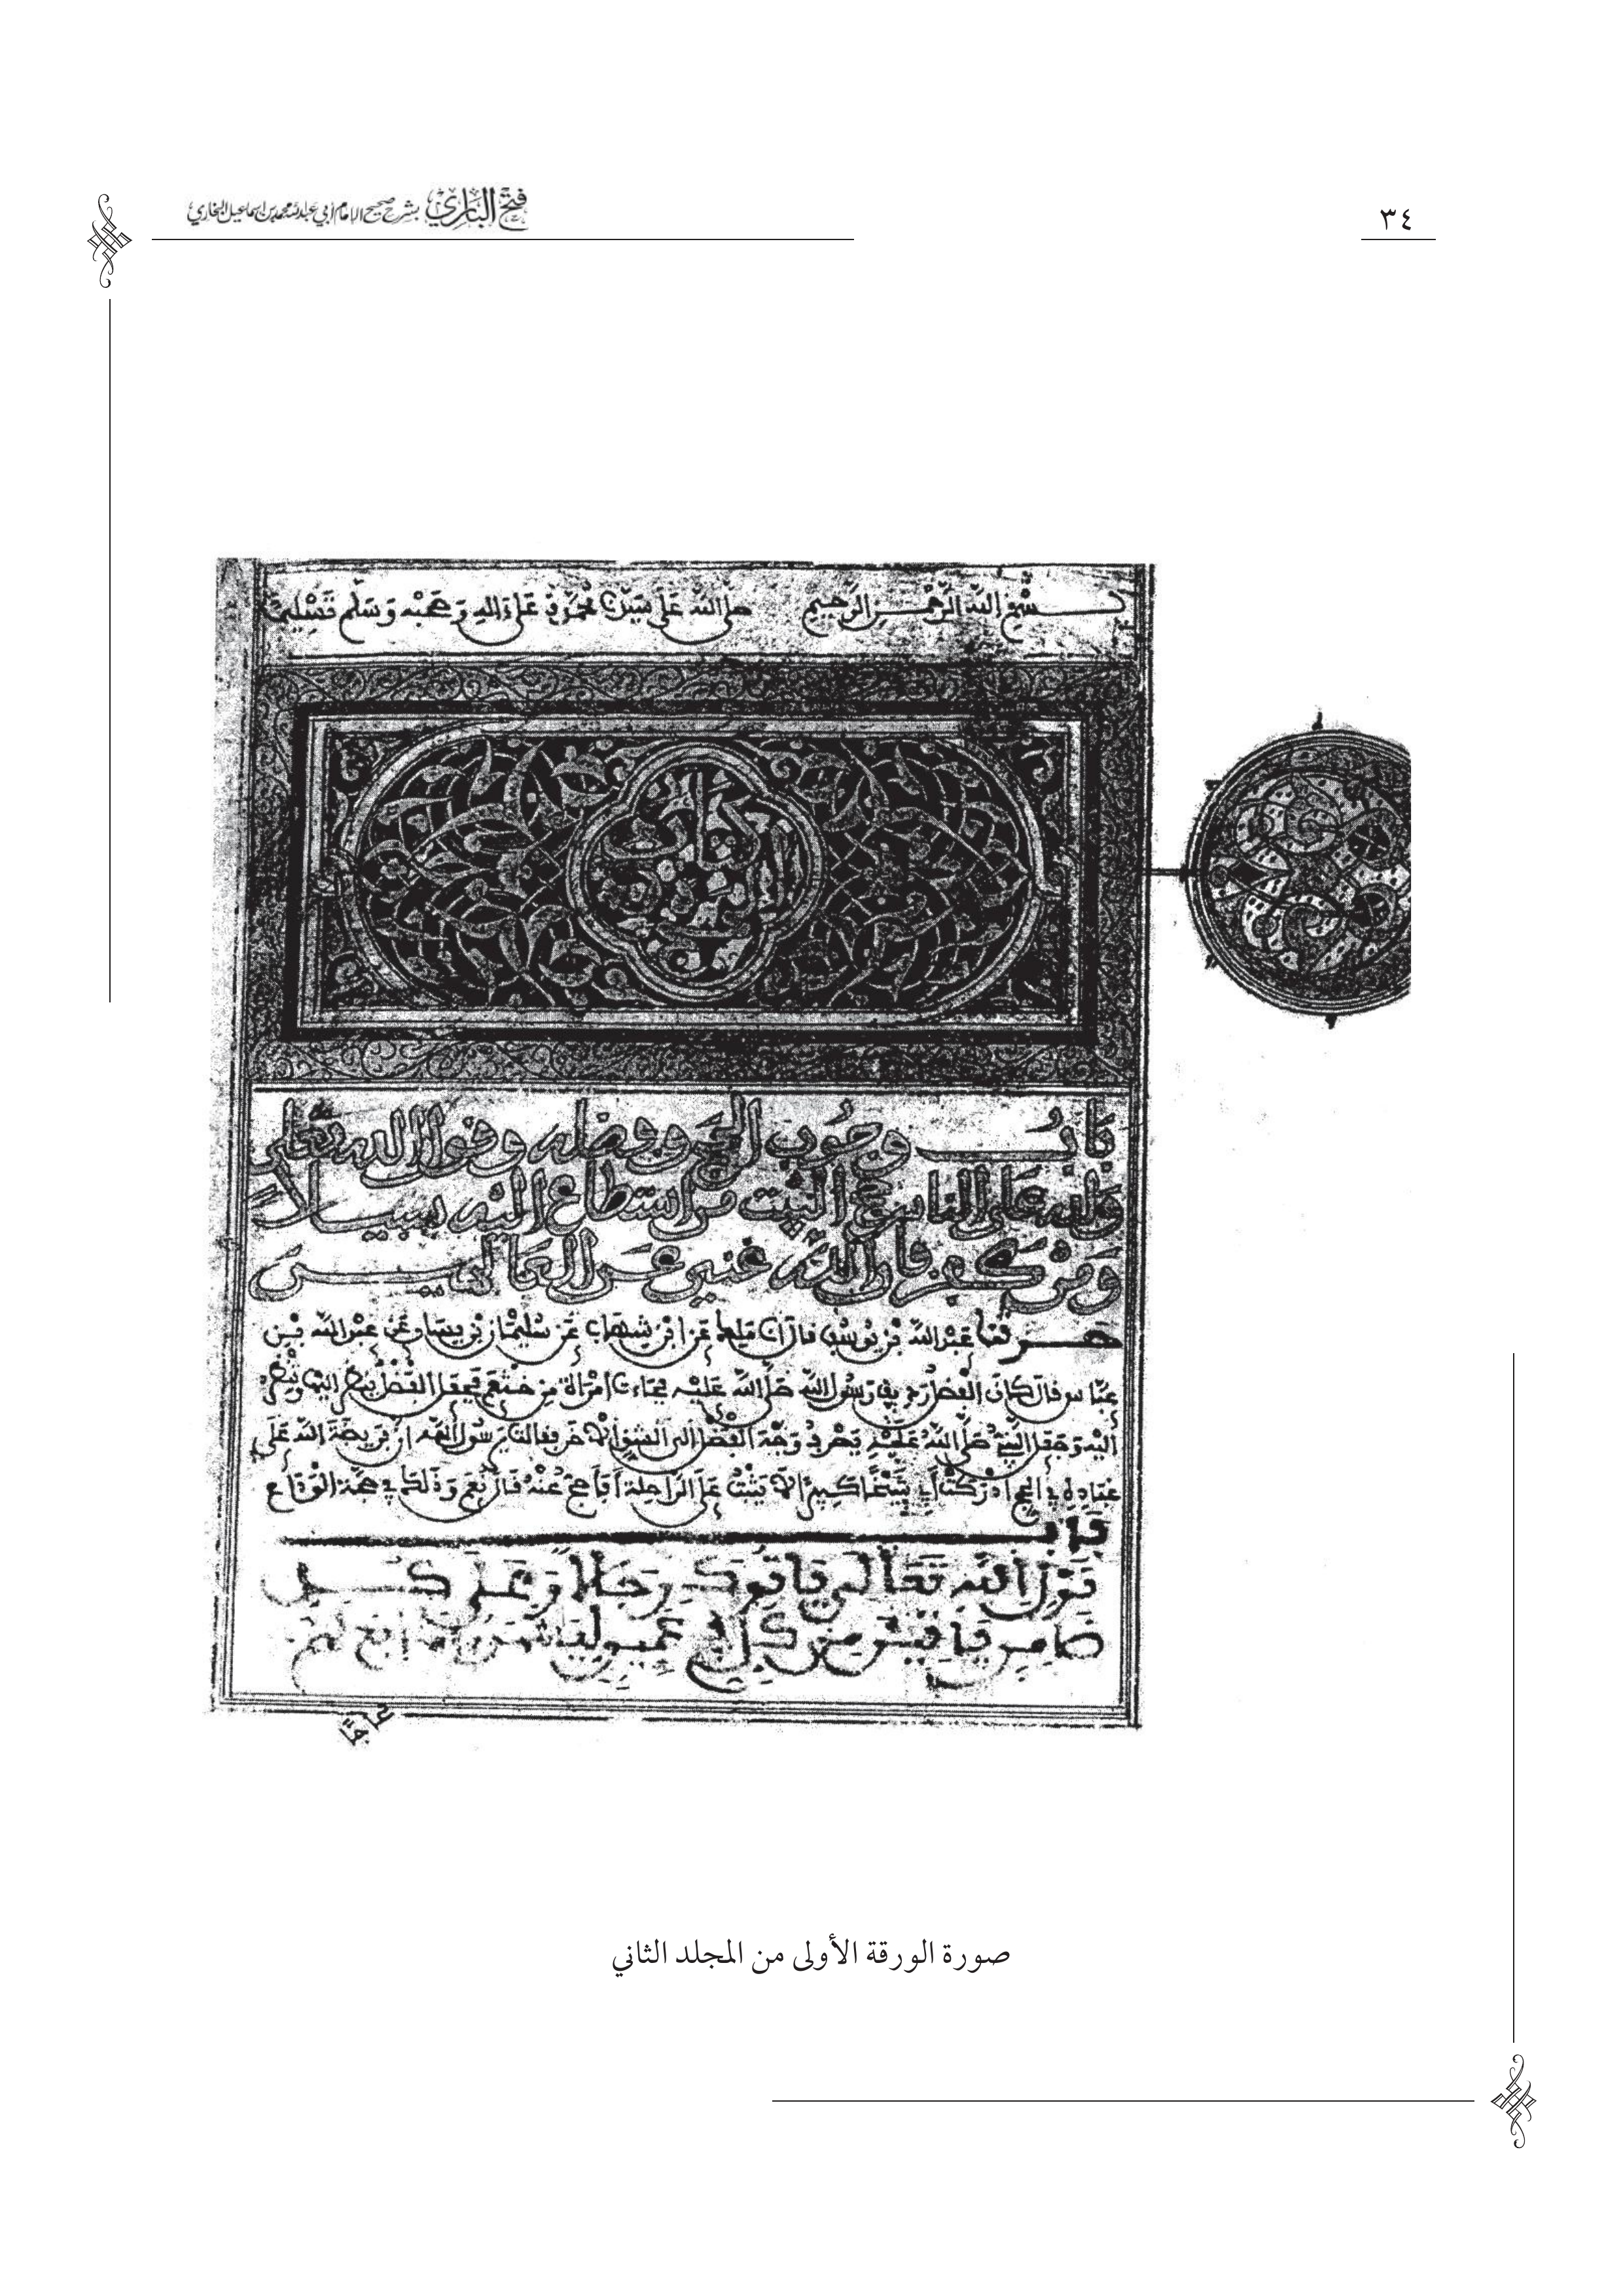 ٣٤
فتح الباري بشرح صحيح الإمام أبي عبد الله محمد بن إسماعيل البخاري
بسم الله الرحمن الرحيم صلى الله على سيدنا محمد وعلى ءاله وصحبه وسلم تسليما
كتاب
باب وجوب الحج وفضله وقول الله تعالى
ولله على الناس حج البيت من استطاع إليه سبيلا
ومن كفر فإن الله غني عن العالمين
حدثنا عبد الله بن يوسف قال أنا ملك عن ابن شهاب عن سليمان بن يسار عن عبد الله بن
عباس قال كان الفضل رديف رسول الله صلى الله عليه فجاءت امرأة من خثعم فجعل الفضل ينظر إليها وتنظر
إليه وجعل النبي صلى الله عليه يصرف وجه الفضل إلى الشق الآخر فقالت يرسول الله إن فريضة الله على
عباده في الحج أدركت أبي شيخا كبيرا لا يثبت على الراحلة أفأحج عنه قال نعم وذلك في حجة الوداع
باب
قول الله تعالى ياتوك رجالا وعلى كل
ضامر ياتين من كل فج عميق ليشهدوا منافع لهم
صورة الورقة الأولى من المجلد الثاني